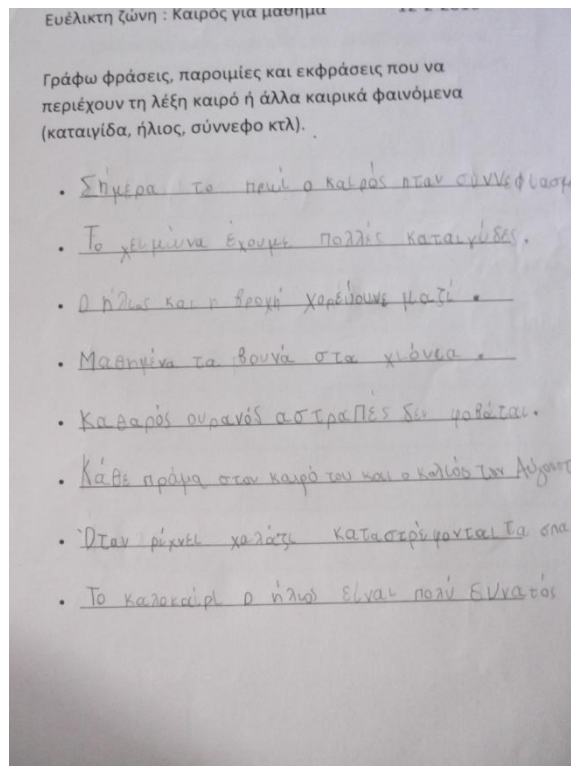 Ευέλικτη ζώνη : Καιρός για μάθημα
Γράφω φράσεις, παροιμίες και εκφράσεις που να
περιέχουν τη λέξη καιρό ή άλλα καιρικά φαινόμενα
(καταιγίδα, ήλιος, σύννεφο κτλ).
• Σήμερα το πρωί ο καιρός ηταν συννεφιασμ
• Το χειμώνα έχουμε πολλές καταιγύδες.
• Ο ήλιος και η βροχή χορεύουνε μαζί.
• Μαθημένα τα βουνά στα χιόνεα.
• Καθαρός ουρανός αστραπές δεν φοβάται.
• Κάθε πράμα στον καιρό του και ο κολιός τον Αύγουστ
• Όταν ρίχνει χαλάζι καταστρέφονται τα σπα
• Το καλοκαίρι ο ήλιος είναι πολύ δυνατός